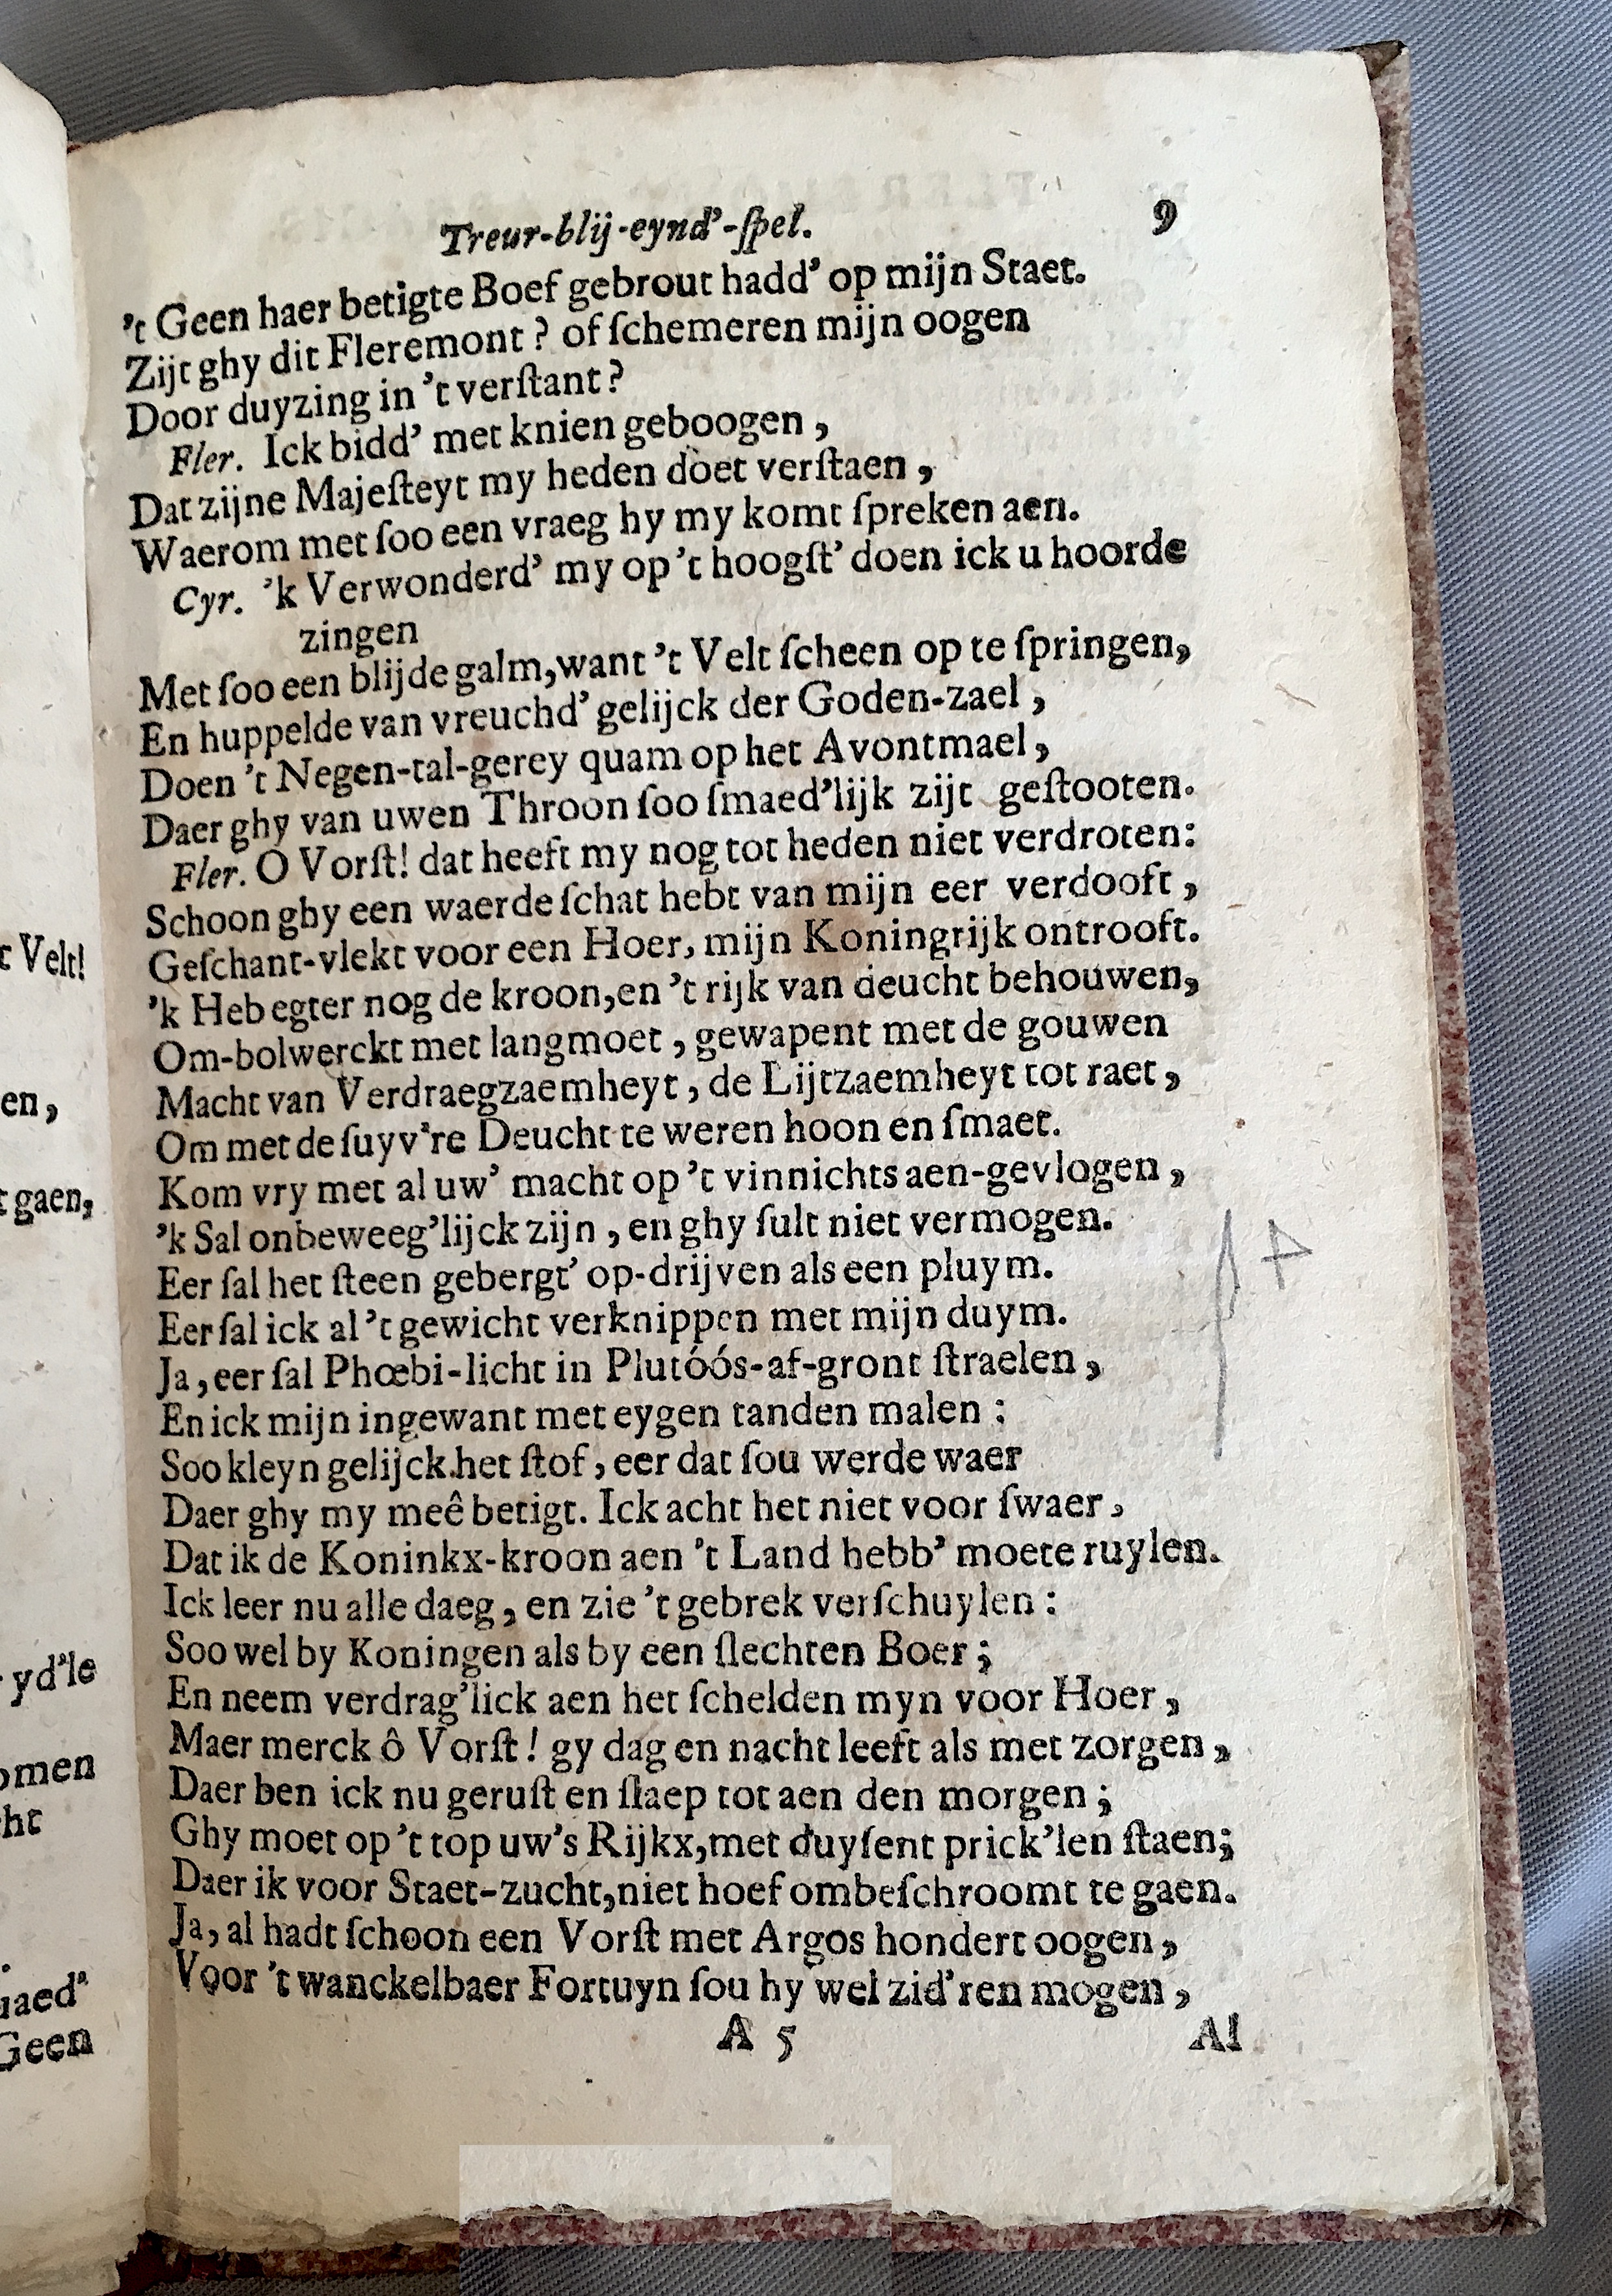 Treur-blij-eynd'-ſpel. 9
't Geen haer betigte Boef gebrout hadd' op mijn Staet.
Zijt ghy dit Fleremont? of ſchemeren mijn oogen
Door duyzing in 't verſtant?
Fler. Ick bidd' met knien geboogen,
Dat zijne Majeſteyt my heden doet verſtaen,
Waerom met ſoo een vraeg hy my komt ſpreken aen.
Cyr. 'k Verwonderd' my op 't hoogſt' doen ick u hoorde
zingen
Met ſoo een blijde galm, want 't Velt ſcheen op te ſpringen,
En huppelde van vreuchd' gelijck der Goden-zael,
Doen 't Negen-tal-gerey quam op het Avontmael,
Daer ghy van uwen Throon ſoo ſmaed'lijk zijt geſtooten.
Fler. O Vorſt! dat heeft my nog tot heden niet verdroten:
Schoon ghy een waerde ſchat hebt van mijn eer verdooft,
Geſchant-vlekt voor een Hoer, mijn Koningrijk ontrooft.
'k Heb egter nog de kroon, en 't rijk van deucht behouwen,
Om-bolwerckt met langmoet, gewapent met de gouwen
Macht van Verdraegzaemheyt, de Lijtzaemheyt tot raet,
Om met de ſuyv're Deucht te weren hoon en ſmaet.
Kom vry met al uw' macht op 't vinnichts aen-gevlogen,
'k Sal onbeweeg'lijck zijn, en ghy ſult niet vermogen.
Eer ſal het ſteen gebergt' op-drijven als een pluym.
Eer ſal ick al 't gewicht verknippen met mijn duym.
Ja, eer ſal Phœbi-licht in Plutóós-af-gront ſtraelen,
En ick mijn ingewant met eygen tanden malen:
Soo kleyn gelijck het ſtof, eer dat ſou werde waer
Daer ghy my meê betigt. Ick acht het niet voor ſwaer,
Dat ik de Koninkx-kroon aen 't Land hebb' moete ruylen.
Ick leer nu alle daeg, en zie 't gebrek verſchuylen:
Soo wel by Koningen als by een ſlechten Boer;
En neem verdrag'lick aen het ſchelden myn voor Hoer,
Maer merck ô Vorſt! gy dag en nacht leeft als met zorgen,
Daer ben ick nu geruſt en ſlaep tot aen den morgen;
Ghy moet op 't top uw's Rijkx, met duyſent prick'len ſtaen;
Daer ik voor Staet-zucht, niet hoef ombeſchroomt te gaen.
Ja, al hadt ſchoon een Vorſt met Argos hondert oogen,
Voor 't wanckelbaer Fortuyn ſou hy wel zid'ren mogen,
A 5 Al
4
t Velt!
en,
t gaen,
yd'le
omen
ht
Geen